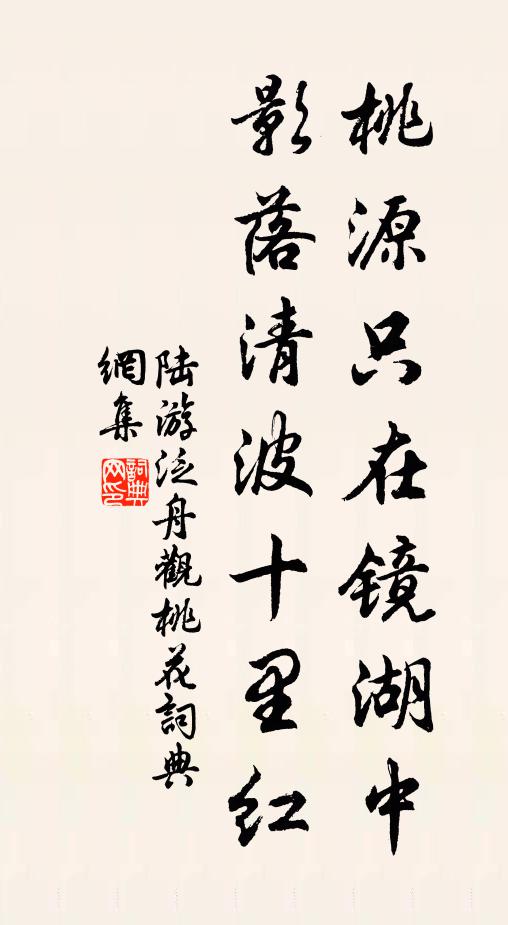 桃源只在镜湖中
影落清波十里红
陆游泛舟觀桃花詞典
網集
詞典网印